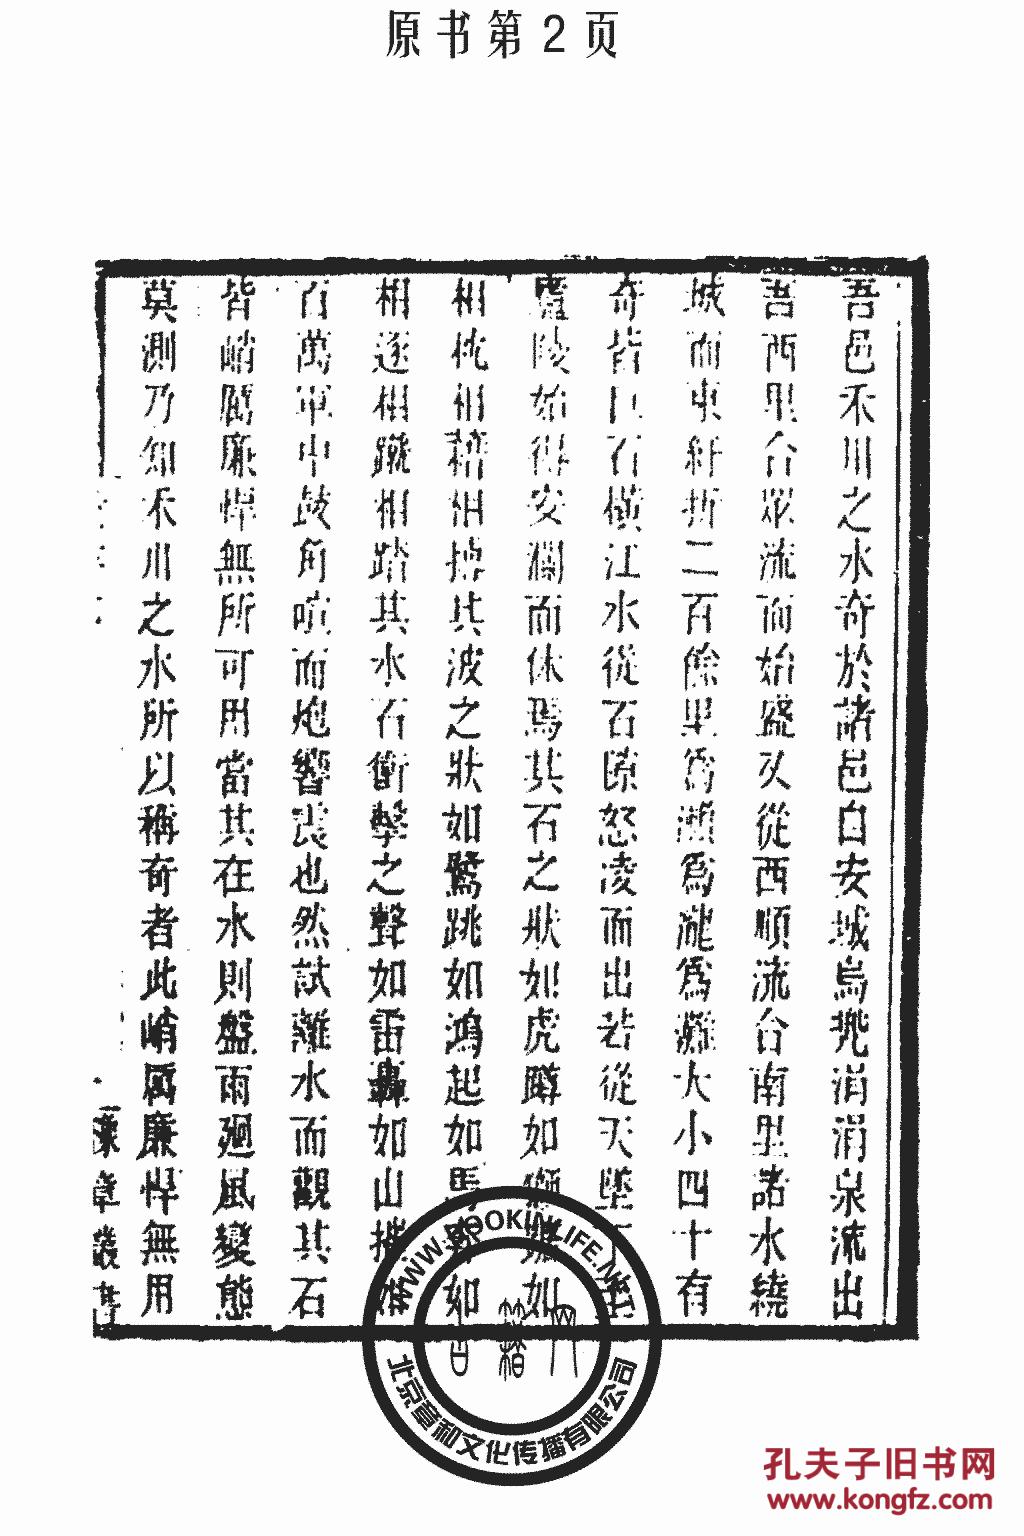 原书第2页
吾邑禾川之水奇於諸邑自安城烏兠涓涓泉流出
吾西里合眾流而始盛又從西順流台南里諸水繞
城而東紆折二百餘里為灘為瀧為灘大小四十有
奇皆巨石橫江水從石隙怒凌而出若從天墜
廬陵始得安瀾而休焉其石之狀如虎蹲如獅如
相枕相藉相搏其波之狀如鷺跳如鴻起如馬如
相逐相蹴相踏其水石衝擊之聲如雷轟如山摧
百萬軍中鼓角喧而炮響震也然試離水而觀其石
皆峭厲廉悍無所可用當其在水則盤雨廻風變態
莫測乃知禾川之水所以稱奇者此峭厲廉悍無用
豫章叢書
WWW.BOOKINLIFE.NET
北京章和文化传播有限公司
孔夫子旧书网
www.kongfz.com